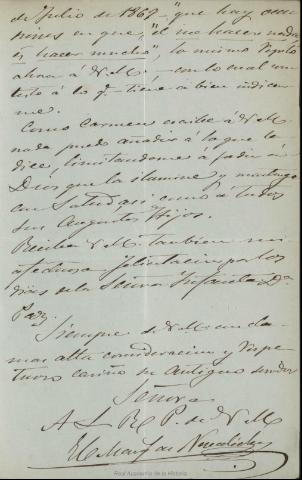 de Julio de 1869, "que hay oca-
siones en que, "el no hacer nada
es hacer mucho", lo mismo repito
ahora á V. M. con lo cual con-
testo á lo q. tiene a bien indicar-
me.
Como Carmen escribe á V. M.
nada puedo añadir á lo que la
dice, limitandome á pedir á
Dios que la ilumine y mantenga
en salud, asi como á todos
sus Augustos Hijos.
Reciba V. M. tambien mi
afectuosa felicitacion por los
dias de la Señora Infanta Dª
Paz.
Siempre de V. M. con la
mas alta consideracion y respe-
tuoso cariño su antiguo servidor
Señora
A L R P. de V. M.
El Marq. de
Real Academia de la Historia